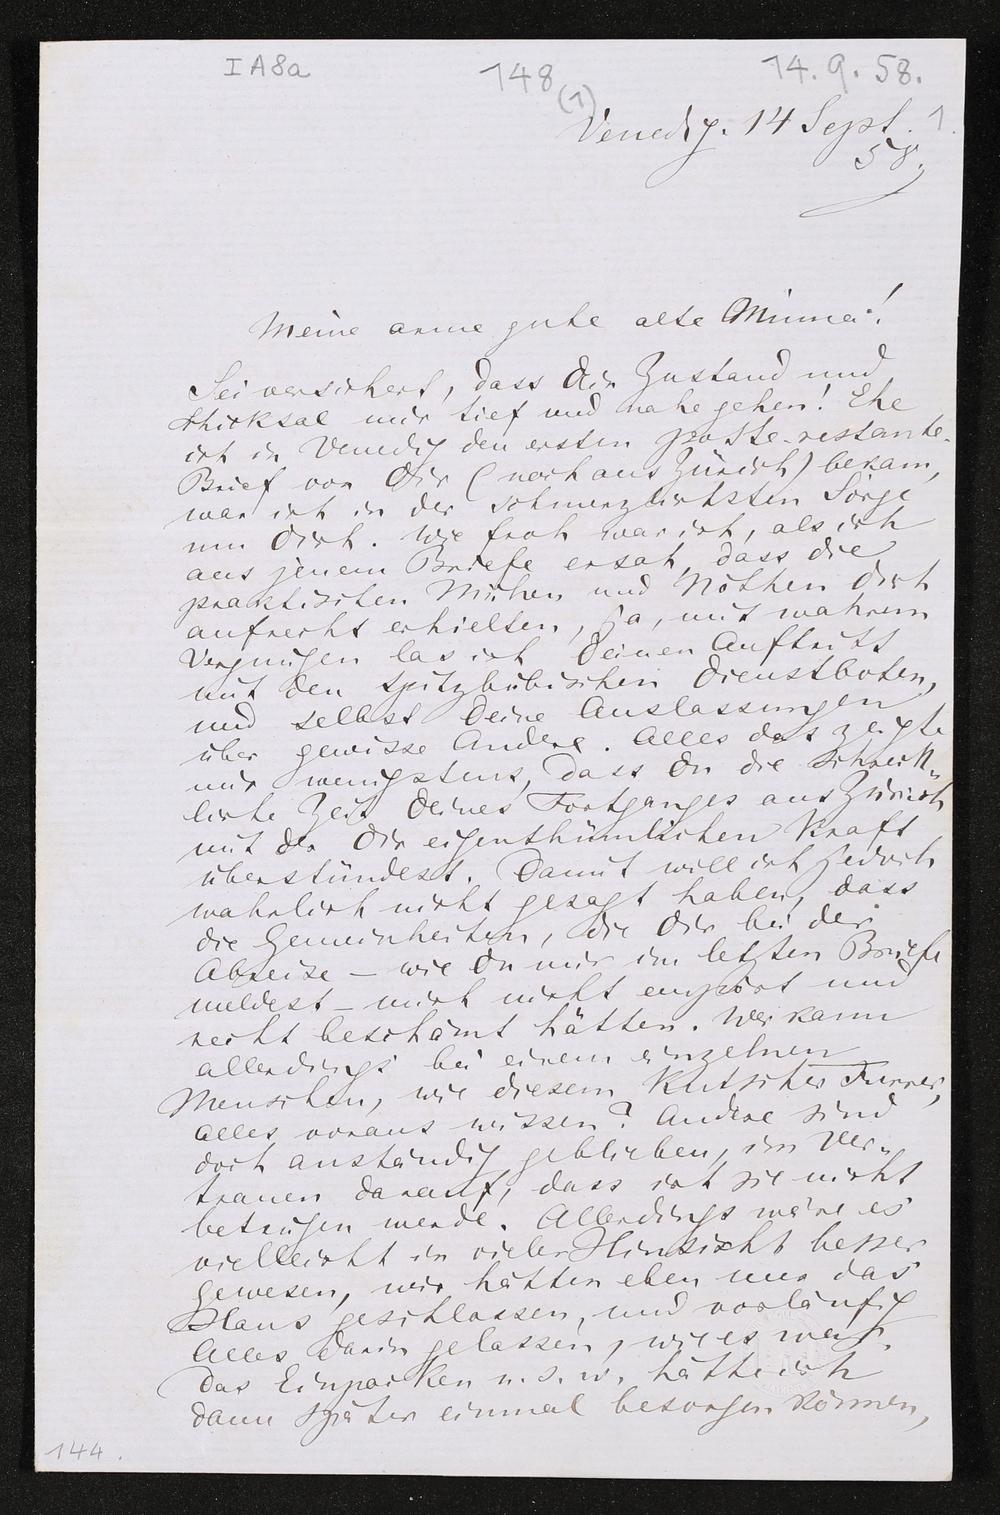 I A8a
148
(1)
14. 9. 58.
1.
Venedig. 14 Sept.
58.
Meine arme gute alte Minna!
Sei versichert, dass Dein Zustand und
Schicksal mir tief und nahe gehen! Ehe
ich in Venedig den ersten poste-restante-
Brief von Dir (noch aus Zürich) bekam,
war ich in der schmerzlichsten Sorge
um Dich. Wie froh war ich, als ich
aus jenem Briefe ersah, dass die
praktischen Mühen und Nöthen Dich
aufrecht erhielten, ja, mit wahrem
Vergnügen las ich Deinen Auftritt
mit den spitzbübischen Dienstboten,
und selbst Deine Auslassungen
über gewisse Andere. Alles das zeigte
mir wenigstens, dass Du die schreck-
liche Zeit Deines Fortganges aus Zürich
mit der Dir eigenthümlichen Kraft
überstündest. Damit will ich jedoch
wahrlich nicht gesagt haben, dass
die Gemeinheiten, die Dir bei der
Abreise – wie Du mir im letzten Briefe
meldest – mich nicht empört und
recht beschämt hätten. Wer kann
allerdings bei einem einzelnen
Menschen, wie diesem Kutscher Furrer,
alles voraus wissen? Andere sind
doch anständig geblieben, im Ver-
trauen darauf, dass ich sie nicht
betrügen werde. Allerdings wäre es
vielleicht in vieler Hinsicht besser
gewesen, wir hätten eben nur das
Haus geschlossen, und vorläufig
Alles darin gelassen, wie es war.
Das Einpacken u. s. w. hätte ich
dann später einmal besorgen können,
144.